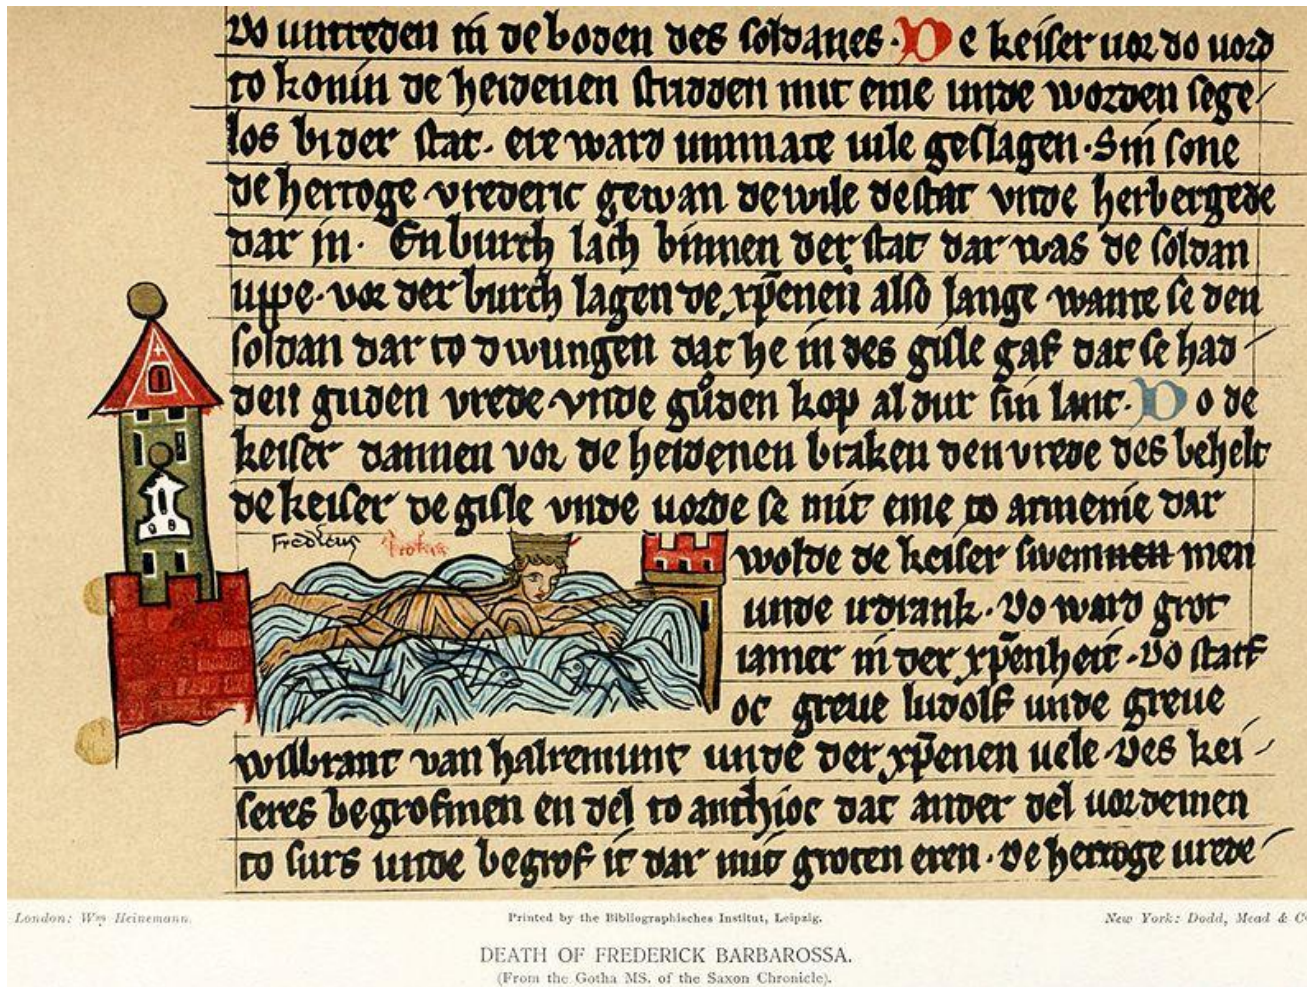 Do untreden in de boden des soldanes. De keiser uor do uord
to konin de heidenen stridden mit eme unde worden sege
los bi der stat. ere ward unmate uile geslagen. Sin sone
de hertoge vrederic gewan de wile de stat vnde herbergede
dar in. En burch lach binnen der stat dar was de soldan
uppe. vor der burch lagen de xp̄enen also lange wante se den
soldan dar to dwungen dat he in des gisle gaf dat se had
den guden vrede vnde gůden kop al dur sin lant. Do de
keiser dannen vor de heidenen braken den vrede des behelt
de keiser de gisle vnde uorde se mit eme to armenie dar
Fredicus
wolde de keiser swemmen men
unde irdrank. Do ward grot
iamer in der xp̄enheit. Do starf
oc greue ludolf unde greue
wilbrant van halremunt unde der xp̄enen uele. Des kei
seres begrofmen en del to anthioc dat ander del uordemen
to surs unde begrof it dar mit groten eren. De hertoge urede
London: Wm Heinemann.
Printed by the Bibliographisches Institut, Leipzig.
New York: Dodd, Mead & C
DEATH OF FREDERICK BARBAROSSA.
(From the Gotha MS. of the Saxon Chronicle).